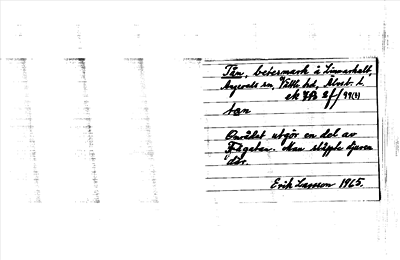 Tån, betesmark å Simonhult,
Angereds sn, Vättle hd, Älvsb. l.
ek 7B 2f/99(4)
tan
Området utgör en del av
Fägatan. Man släppte djuren
där.
Erik Larsson 1965.